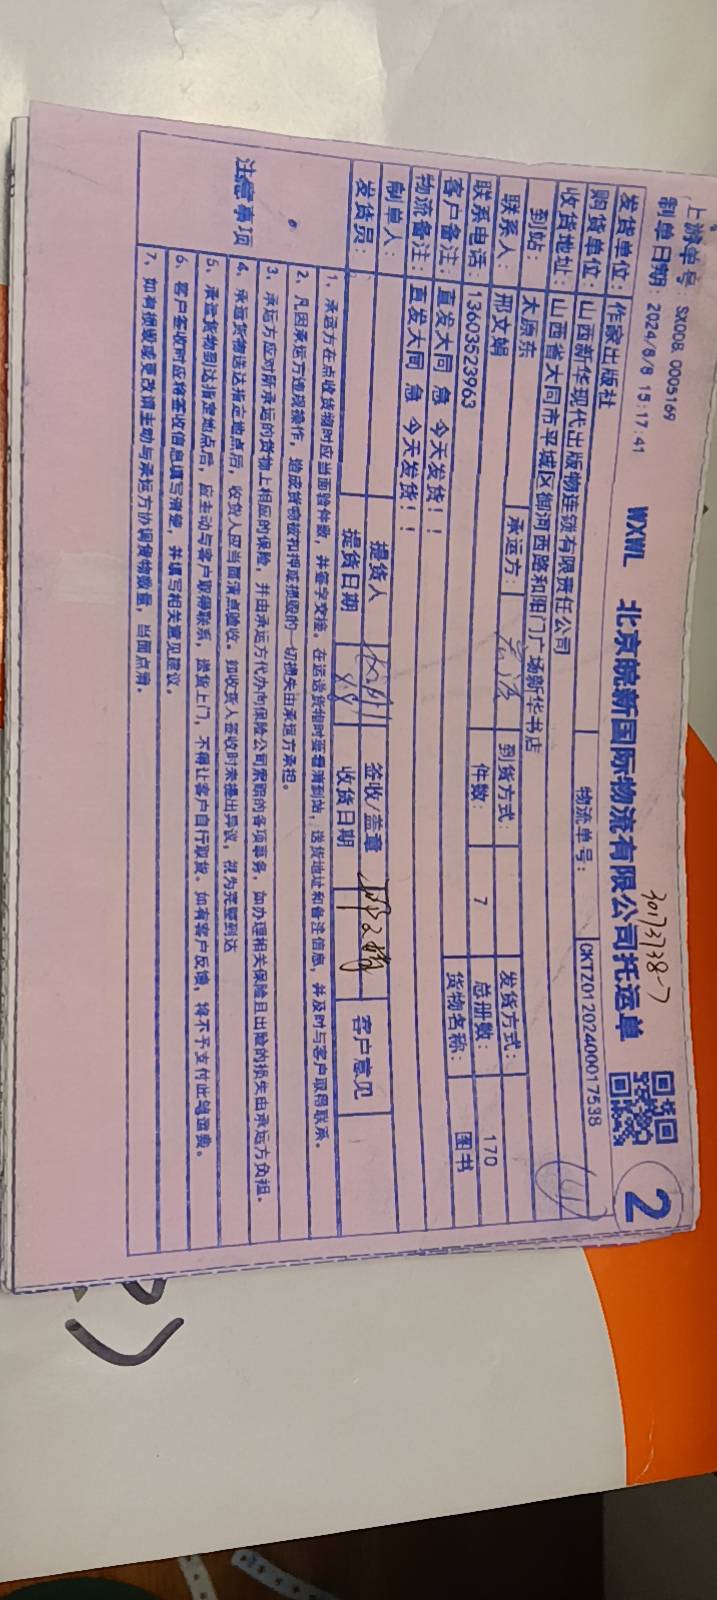 上游单号: SX008.0005169
制单日期: 2024/8/8 15:17:41
WXWL 北京皖新国际物流有限公司托运单
30173738-7
2
发货单位: 作家出版社
物流单号: CKTZ0120240001​7538
购货单位: 山西新华现代出版物连锁有限责任公司
收货地址: 山西省大同市平城区御河西路和阳门广场新华书店
到站: 太原东
承运方:
到货方式:
发货方式:
联系人: 邢文娟
件数: 7
总册数: 170
联系电话: 13603523963
货物名称: 图书
客户备注: 直发大同 急 今天发货!!
物流备注: 直发大同 急 今天发货!!
制单人:
提货人
签收/盖章 邢文娟
客户意见
发货员:
提货日期 8.8
收货日期
注意事项
1、承运方在点收货物时应当面验件数,并签字交接。在运送货物时要看清到站,送货地址和备注信息,并及时与客户取得联系。
2、凡因承运方违规操作,造成货物被扣押或损毁的一切损失由承运方承担。
3、承运方应对所承运的货物上相应的保险,并由承运方代办向保险公司索赔的各项事务,如办理相关保险且出险的损失由承运方负担。
4、承运货物送达指定地点后,收货人应当面清点验收。如收货人签收时未提出异议,视为完整到达
5、承运货物到达指定地点后,应主动与客户取得联系,送货上门,不得让客户自行取货。如有客户反馈,将不予支付此笔运费。
6、客户签收时应将签收信息填写清楚,并填写相关意见建议。
7、如有损毁或更改请主动与承运方协调货物数量,当面点清。